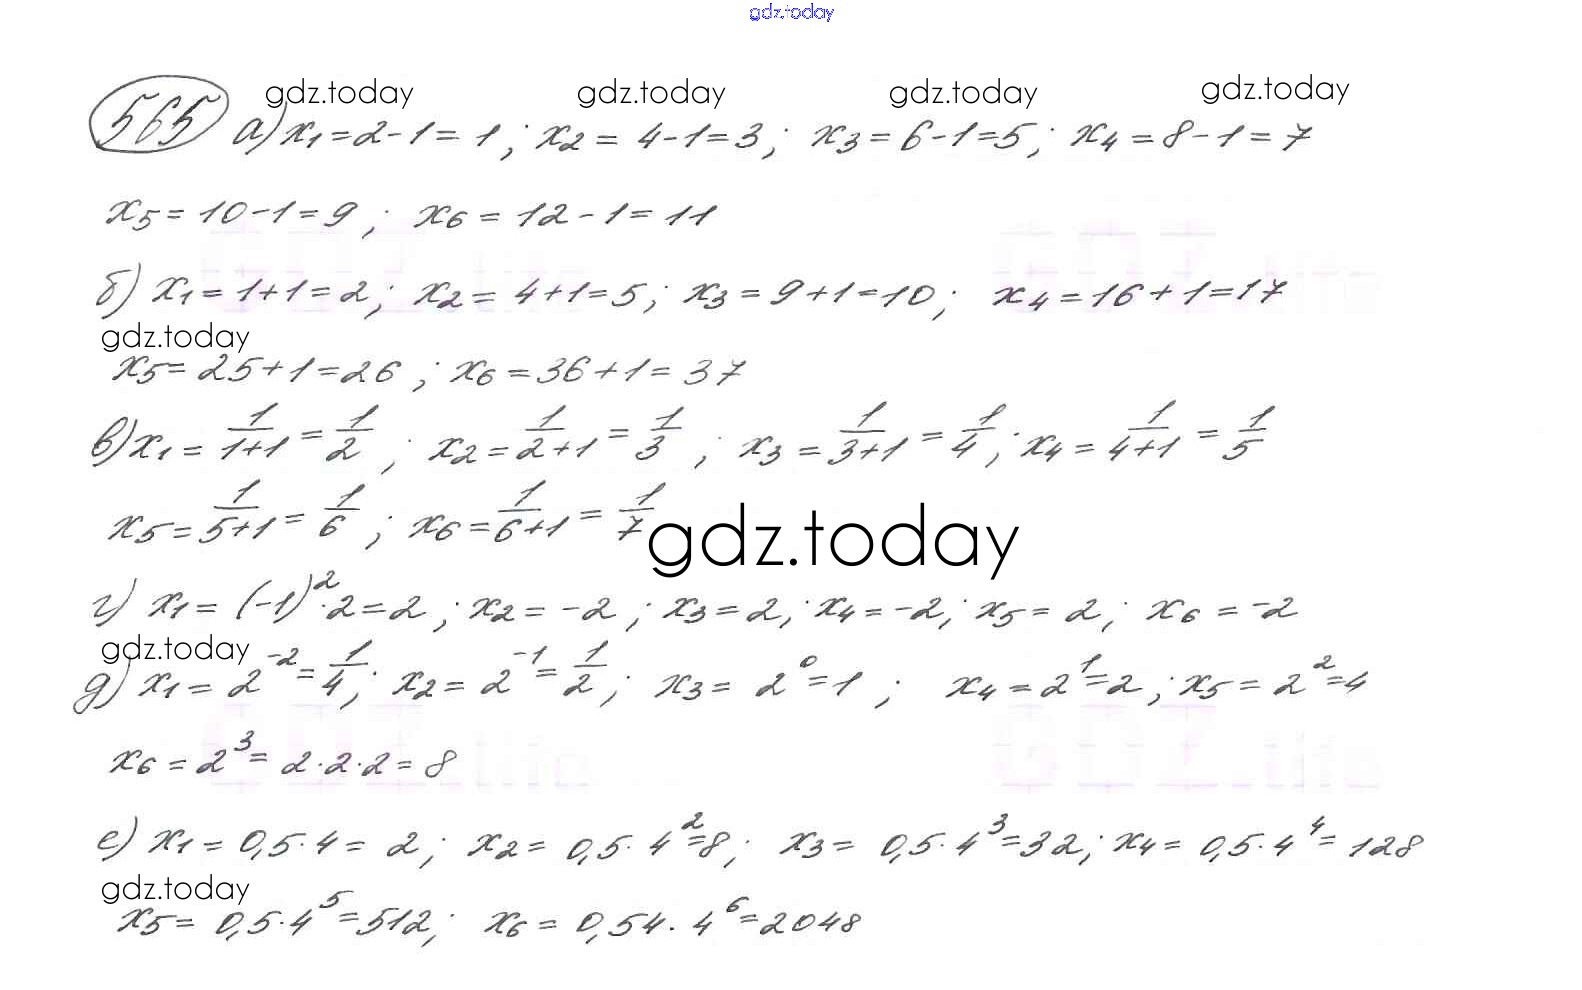 gdz.today
gdz.today gdz.today gdz.today gdz.today
565 а) x₁ = 2 - 1 = 1; x₂ = 4 - 1 = 3; x₃ = 6 - 1 = 5; x₄ = 8 - 1 = 7
x₅ = 10 - 1 = 9; x₆ = 12 - 1 = 11
GDZ.life GDZ.life
б) x₁ = 1 + 1 = 2; x₂ = 4 + 1 = 5; x₃ = 9 + 1 = 10; x₄ = 16 + 1 = 17
gdz.today
x₅ = 25 + 1 = 26; x₆ = 36 + 1 = 37
в) x₁ = 1/(1+1) = 1/2; x₂ = 1/(2+1) = 1/3; x₃ = 1/(3+1) = 1/4; x₄ = 1/(4+1) = 1/5
x₅ = 1/(5+1) = 1/6; x₆ = 1/(6+1) = 1/7
gdz.today
г) x₁ = (-1)² · 2 = 2; x₂ = -2; x₃ = 2; x₄ = -2; x₅ = 2; x₆ = -2
gdz.today
д) x₁ = 2⁻² = 1/4; x₂ = 2⁻¹ = 1/2; x₃ = 2⁰ = 1; x₄ = 2¹ = 2; x₅ = 2² = 4
GDZ.life GDZ.life
x₆ = 2³ = 2·2·2 = 8
е) x₁ = 0,5·4 = 2; x₂ = 0,5·4² = 8; x₃ = 0,5·4³ = 32; x₄ = 0,5·4⁴ = 128
gdz.today
x₅ = 0,5·4⁵ = 512; x₆ = 0,54·4⁶ = 2048